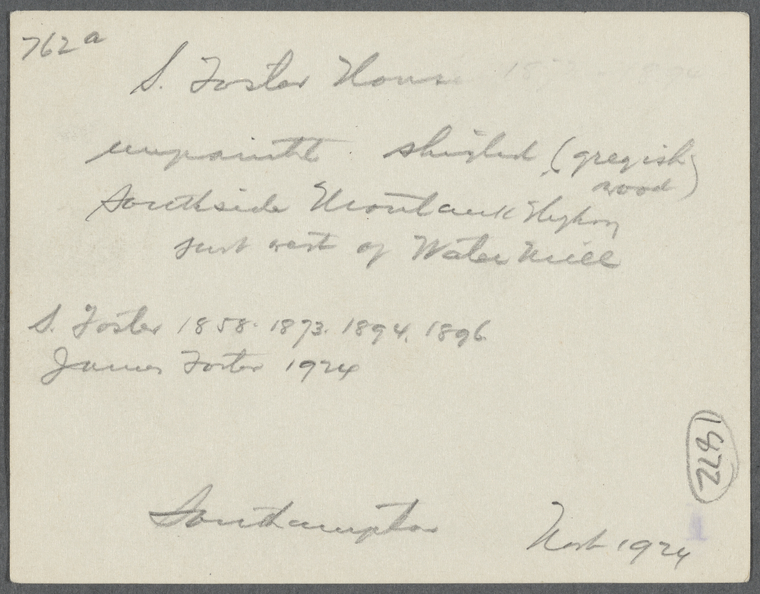 762a
S. Foster House 1873 - 1894
unpainted shingled (greyish
wood)
Southside Montauk Highway
just west of Water Mill
S. Foster 1858. 1873. 1894. 1896.
James Foster 1924
1872
Southampton
1924